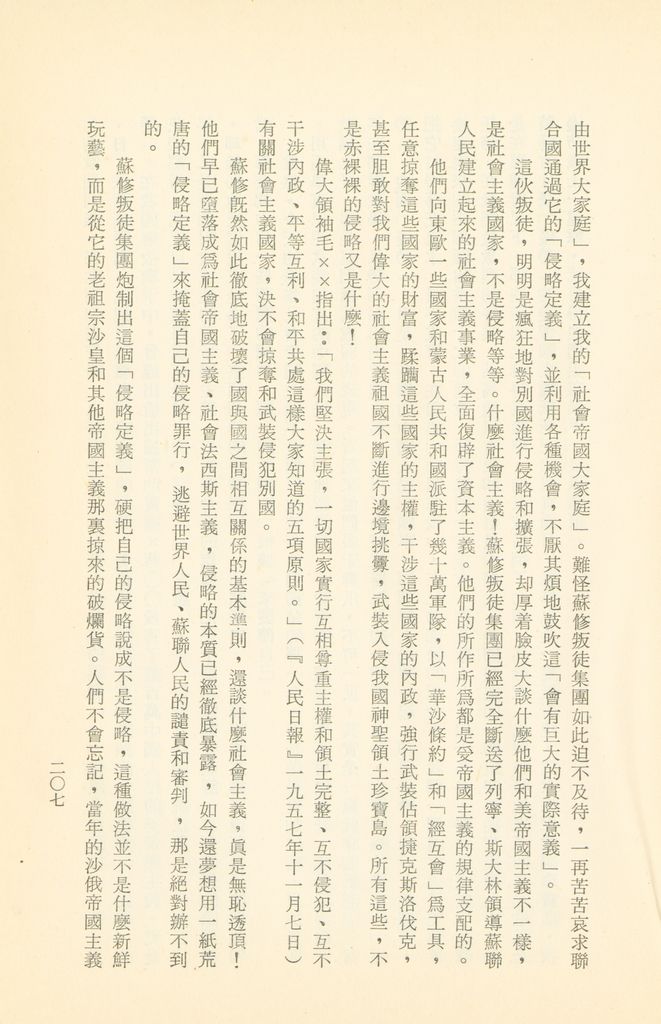 由世界大家庭」，我建立我的「社會帝國大家庭」。難怪蘇修叛徒集團如此迫不及待，一再苦苦哀求聯
合國通過它的「侵略定義」，並利用各種機會，不厭其煩地鼓吹這「會有巨大的實際意義」。
這伙叛徒，明明是瘋狂地對別國進行侵略和擴張，却厚着臉皮大談什麼他們和美帝國主義不一樣，
是社會主義國家，不是侵略等等。什麼社會主義！蘇修叛徒集團已經完全斷送了列寧、斯大林領導蘇聯
人民建立起來的社會主義事業，全面復辟了資本主義。他們的所作所爲都是受帝國主義的規律支配的。
他們向東歐一些國家和蒙古人民共和國派駐了幾十萬軍隊，以「華沙條約」和「經互會」爲工具，
任意掠奪這些國家的財富，蹂躪這些國家的主權，干涉這些國家的內政，強行武裝佔領捷克斯洛伐克，
甚至胆敢對我們偉大的社會主義祖國不斷進行邊境挑釁，武裝入侵我國神聖領土珍寶島。所有這些，不
是赤裸裸的侵略又是什麼！
偉大領袖毛××指出：「我們堅決主張，一切國家實行互相尊重主權和領土完整、互不侵犯、互不
干涉內政、平等互利、和平共處這樣大家知道的五項原則。」（『人民日報』一九五七年十一月七日）
有關社會主義國家，決不會掠奪和武裝侵犯別國。
蘇修既然如此徹底地破壞了國與國之間相互關係的基本準則，還談什麼社會主義，眞是無恥透頂！
他們早已墮落成爲社會帝國主義、社會法西斯主義，侵略的本質已經徹底暴露，如今還夢想用一紙荒
唐的「侵略定義」來掩蓋自己的侵略罪行，逃避世界人民、蘇聯人民的譴責和審判，那是絕對辦不到
的。
蘇修叛徒集團炮制出這個「侵略定義」，硬把自己的侵略說成不是侵略，這種做法並不是什麼新鮮
玩藝，而是從它的老祖宗沙皇和其他帝國主義那裏掠來的破爛貨。人們不會忘記，當年的沙俄帝國主義
二〇七